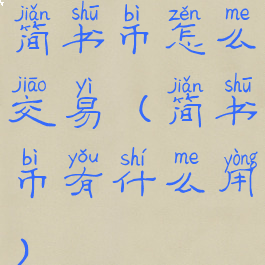 jiǎn shū bì zěn me
简书币怎么
jiāo yì jiǎn shū
交易(简书
bì yǒu shí me yòng
币有什么用
)